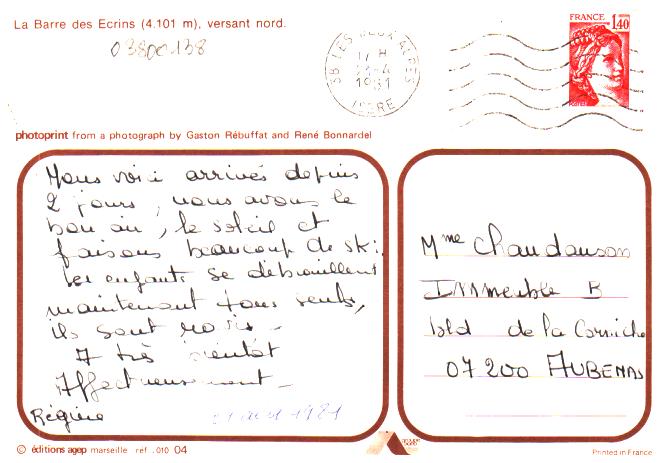 La Barre des Ecrins (4.101 m), versant nord.
038DC138
38 LES DEUX ALPES
17 H
23-4
1981
ISERE
FRANCE
1,40
photoprint from a photograph by Gaston Rébuffat and René Bonnardel
Nous voici arrivés depuis
2 jours, nous avons le
bon air, le soleil et
faisons beaucoup de ski.
les enfants se débrouillent
maintenant tous seuls,
ils sont
A très bientôt
Affectueusement -
Régine
1981
Mme Chaudanson
Immeuble B
bld de la Corniche
07200 AUBENAS
© éditions agep marseille réf .010 04
Printed in France